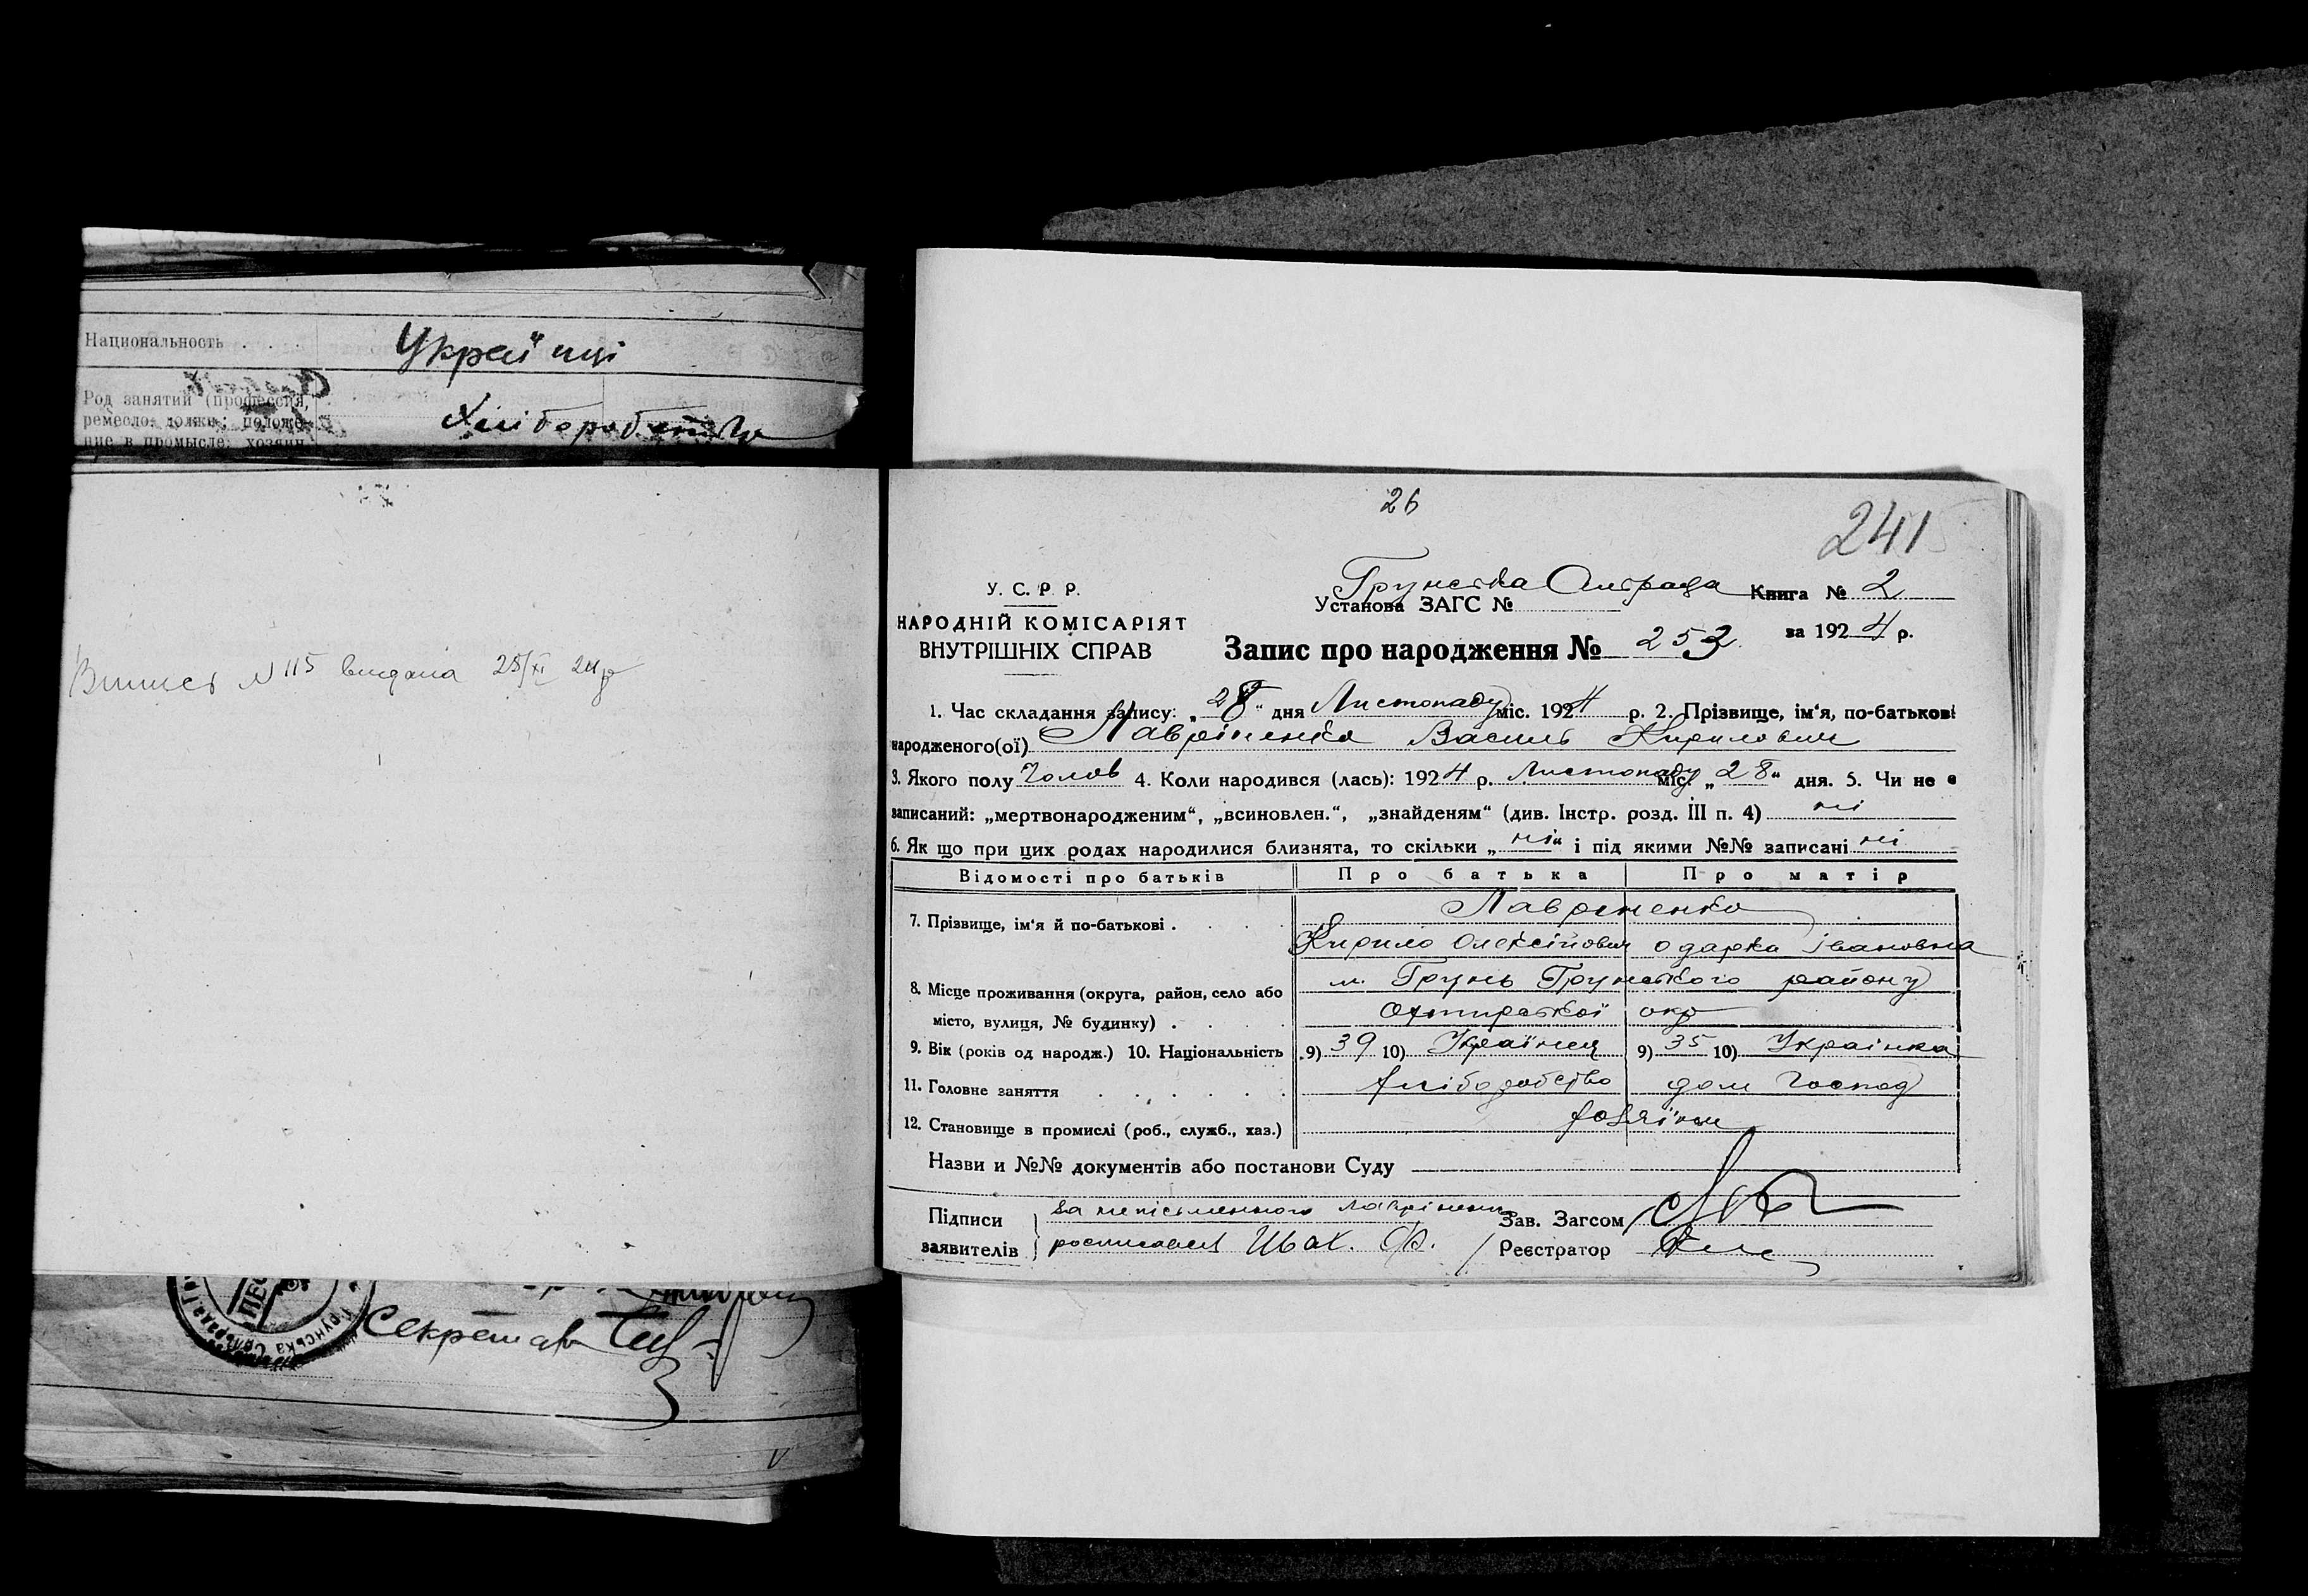 Национальность . . .
Українці
Род занятий (профессия,
ремесло, должн.; положе-
ние в промысле: хозяин,
Хліборобство
Випись № 115 видана 28/XI 24 р
Грунська Сільрада
Секретар
26
241
У. С. Р. Р.
НАРОДНІЙ КОМІСАРІЯТ
ВНУТРІШНІХ СПРАВ
Грунська Сільрада
Установа ЗАГС №
Книга № 2
за 1924 р.
Запис про народження № 252
1. Час складання запису: „28“ дня Листопаду міс. 1924 р. 2. Прізвище, ім‘я, по-батькові
народженого(ої) Лавріненко Василь Кирилович
3. Якого полу Чолов 4. Коли народився (лась): 1924 р. Листопаду міс. „28“ дня. 5. Чи не є
записаний: „мертвонародженим“, „всиновлен.“, „знайденям“ (див. Інстр. розд. III п. 4) ні
6. Як що при цих родах народилися близнята, то скільки „ні“ і під якими №№ записані ні
Відомості про батьків Про батька Про матір
7. Прізвище, ім‘я й по-батькові . . . .
Лавріненко
Кирило Олексійович Одарка Івановна
8. Місце проживання (округа, район, село або
місто, вулиця, № будинку) . . . .
м. Грунь Грунського району
Охтирської окр
9. Вік (років од народж.) 10. Національність 9) 39 10) Українец 9) 35 10) Украінка
11. Головне заняття . . . . . . хліборобство дом господ
12. Становище в промислі (роб., служб., хаз.) хозяїни
Назви и №№ документів або постанови Суду
Підписи
заявителів
за неписьменного Лавріненк
росписався Швах. Ф.
Зав. Загсом
Реєстратор